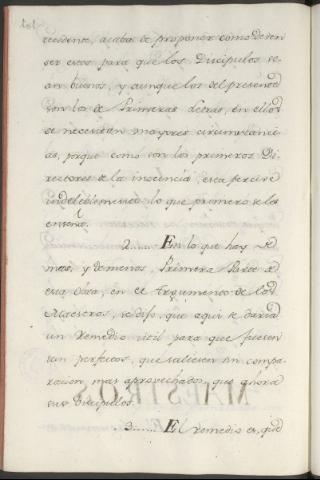 cedente, acaba de proponer como deven
ser estos para que los Discipulos se-
an buenos, y aunque los del presente
son los de Primeras Letras, en ellos
se necesitan mayores circunstanci-
as, porque como son los primeros Di-
rectores de la inocencia, esta percive
indeleblemente lo que primero se les
enseña.
2...... En lo que hay
mas, y demenos, Primera Parte de
esta Obra, en el Argumento de los
Maestros, se dijo, que aqui se daria
un remedio util para que fuesen
tan perfectos, que saliesen sin compa-
racion mas aprovechados, que ahora
sus Discipulos.
3...... El remedio es, que